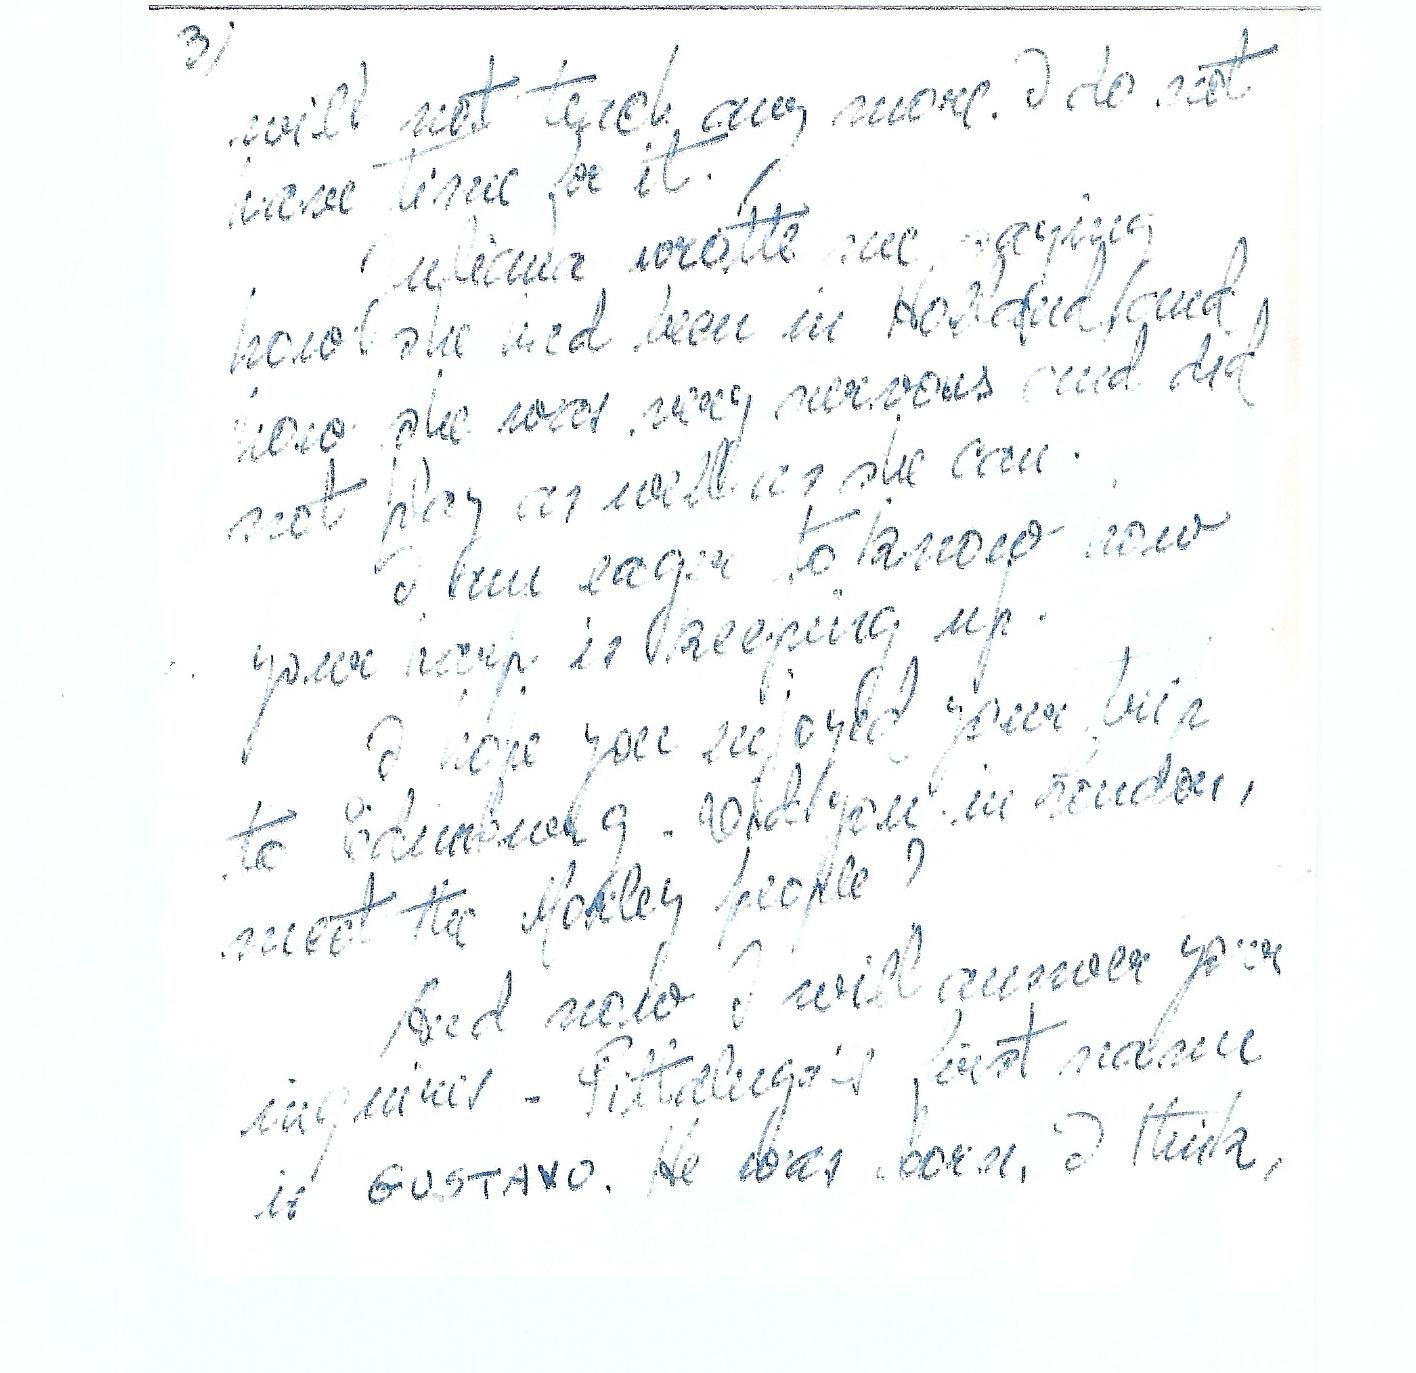 3)
will not teach any more. I do not
have time for it.
Juliana wrotte me saying
how she had been in Holland and
how she was very nervous and did
not play as well as she can.
I am eager to know how
your harp is keeping up.
I hope you enjoyed your trip
to Edimburg. Did you in London,
meet the Morley people?
And now I will answer your
inquiries - Pittaluga's first name
is GUSTAVO. He was born, I think,